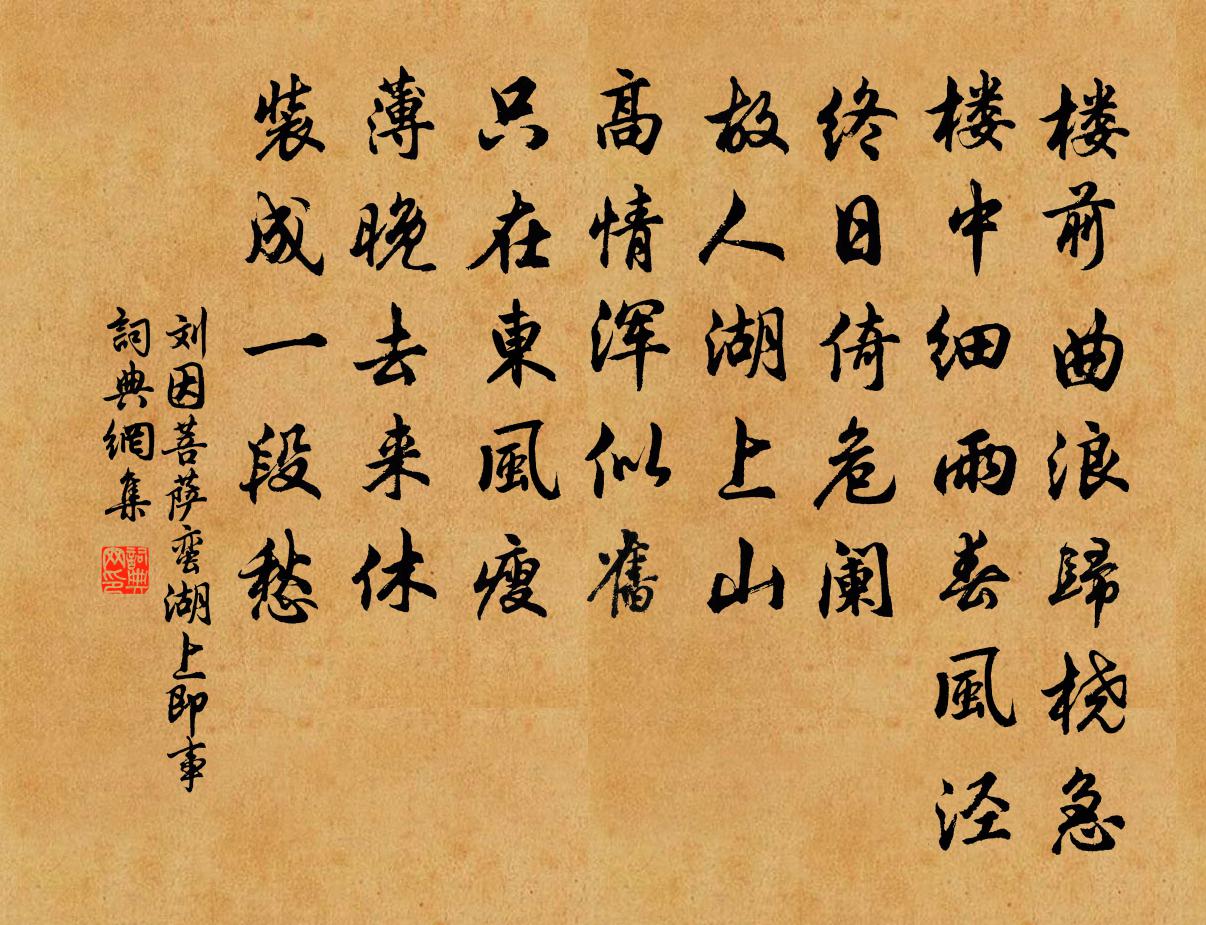 楼前曲浪歸桡急
楼中细雨春風泾
终日倚危阑
故人湖上山
高情浑似舊
只在東風瘦
薄晚去来休
装成一段愁
刘因菩萨蛮湖上即事
詞典網集
詞典网印